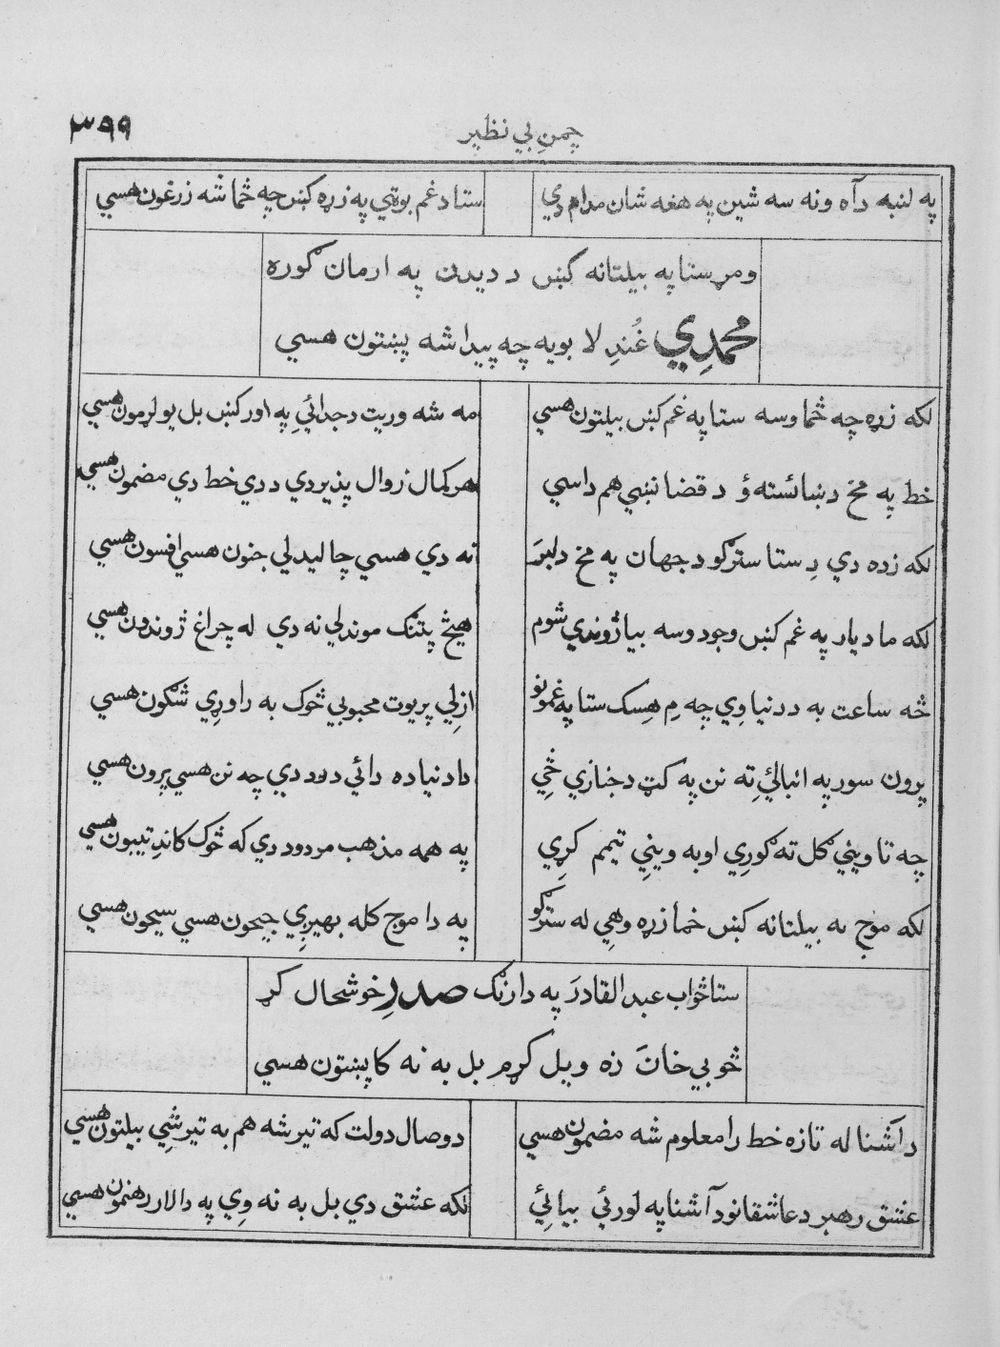 چمنِ بي نظير ۳۹۹
په لنبه د آه ونه سه شين په هغه شان مدام دي ستا د غم بوټي په زړه کښ چه څما شه زرغون هسي
ومړ ستا په بيلتانه کښ د ديدن په ارمان ګوره
محمدِي غُندِ لا بويه چه پيدا شه پښتون هسي
لکه زړه چه څما وسه ستا په غم کښ بيلتون هسي مه شه وريت د جدائيِ په اور کښ بل يو لړمون هسي
خط په مخ د ښائسته ؤ د قضا نښي هم داسي هر کمال زوال پذير دي د دي خط دي مضمون هسي
لکه زده دي دِ ستا سترګو د جهان په مخ دلبرَ نه دي هسي چا ليدلي جنون هسي افسون هسي
لکه ما د يار په غم کښ وجود وسه بيا ژوندي شوم هيڅ پتنګ موندلي نه دي له چراغ ژوندون هسي
څه ساعت به د دنيا وِي چه مِ هِسک ستا په غمونو ازلِي پريوت محبوبي څوک به راوړِي شګون هسي
پرون سور په انبالئِ ته نن په کټ د جنازي ځِي دا دنيا ده دائي دود دي چه نن هسي پرون هسي
چه تا ويني ګل ته ګورِي اوبه وينيِ تيمم کړِي په همه مذهب مردود دي که څوک کاندِ تيبون هسي
لکه موج به بيلتانه کښ خما زړه وهي له سترګو په دا موج کله بهيږي جيحون هسي سيحون هسي
ستا ځواب عبدالقادرَ په دا رنګ صدرِ خوشحال کړ
څو بي خانَ زه وېل کړم بل به نه کا پښتون هسي
د آشنا له تازه خط را معلوم شه مضمون هسي د وصال دولت که تېر شه هم به تېر شِي بيلتون هسي
عشق رهبر د عاشقانو د آشنا په لورئي بيائي لکه عشق دي بل به نه وِي په دا لار رهنمون هسي